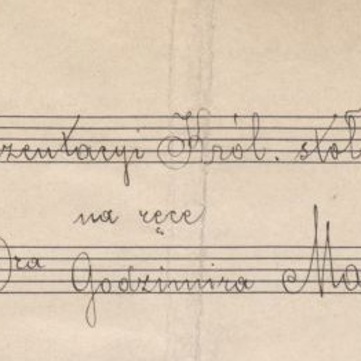 zentacyi Król. stoł
na ręce
Dra Godzimira Ma